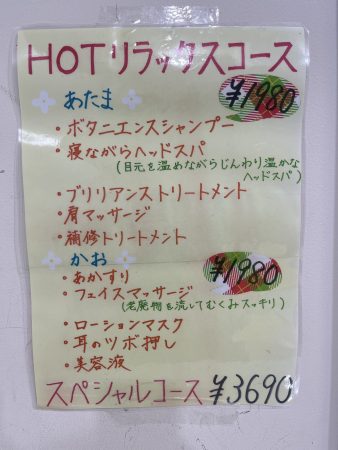 HOTリラックスコース
あたま ¥1980
・ボタニエンスシャンプー
・寝ながらヘッドスパ
(目元を温めながらじんわり温かな
ヘッドスパ)
・ブリリアンストリートメント
・肩マッサージ
・補修トリートメント
かお ¥1980
・あかすり
・フェイスマッサージ
(老廃物を流してむくみスッキリ)
・ローションマスク
・耳のツボ押し
・美容液
スペシャルコース ¥3690